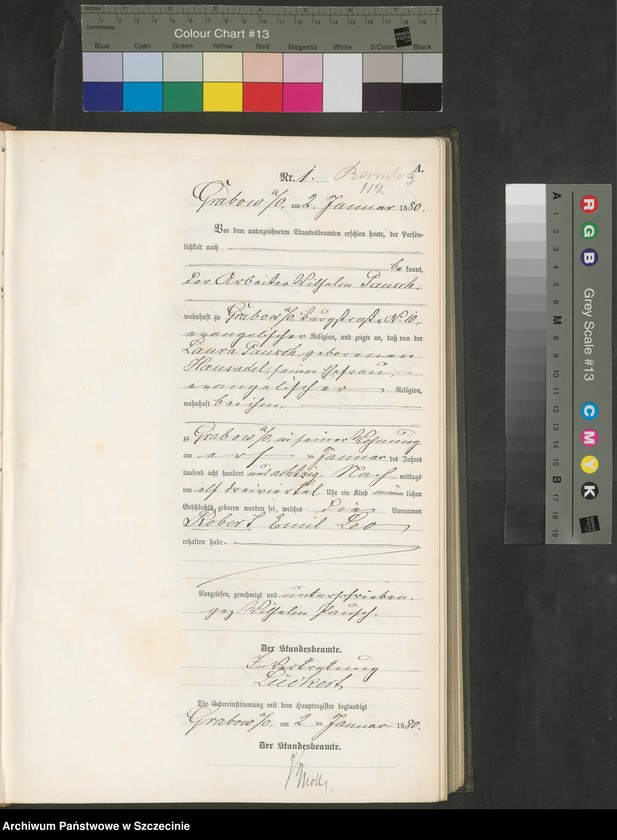 Inches 1 2 3 4 5 6 7 8
Centimetres 1 2 3 4 5 6 7 8 9 10 11 12 13 14 15 16 17 18 19
Colour Chart #13
Blue Cyan Green Yellow Red Magenta White 3/Color Black
A.
Nr. 1.
3
112
Grabow a/O. am 2. Januar 1880.
Vor dem unterzeichneten Standesbeamten erschien heute, der Persön-
lichkeit nach
be kannt,
der Arbeiter Wilhelm Pausch,
wohnhaft zu Grabow a/O. Burgstraße No 10,
evangelischer Religion, und zeigte an, daß von der
Laura Pausch, geborenen
Hausadel, seiner Ehefrau,
evangelischer Religion,
wohnhaft bei ihm,
zu Grabow a/O. in seiner Wohnung
am ersten Januar des Jahres
tausend acht hundert und achtzig Nach mittags
um elf dreiviertel Uhr ein Kind männ lichen
Geschlechts geboren worden sei, welches die Vornamen
Robert Emil Leo
erhalten habe.
Vorgelesen, genehmigt und unterschrieben.
gez. Wilhelm Pausch.
Der Standesbeamte.
In Vertretung
Lüdkert
Die Uebereinstimmung mit dem Hauptregister beglaubigt
Grabow a/O. am 2 ten Januar 1880.
Der Standesbeamte.
Grey Scale #13
A 1 2 3 4 5 6 M 8 9 10 11 12 13 14 15 B 17 18 19
R G B
C M Y K
Archiwum Państwowe w Szczecinie